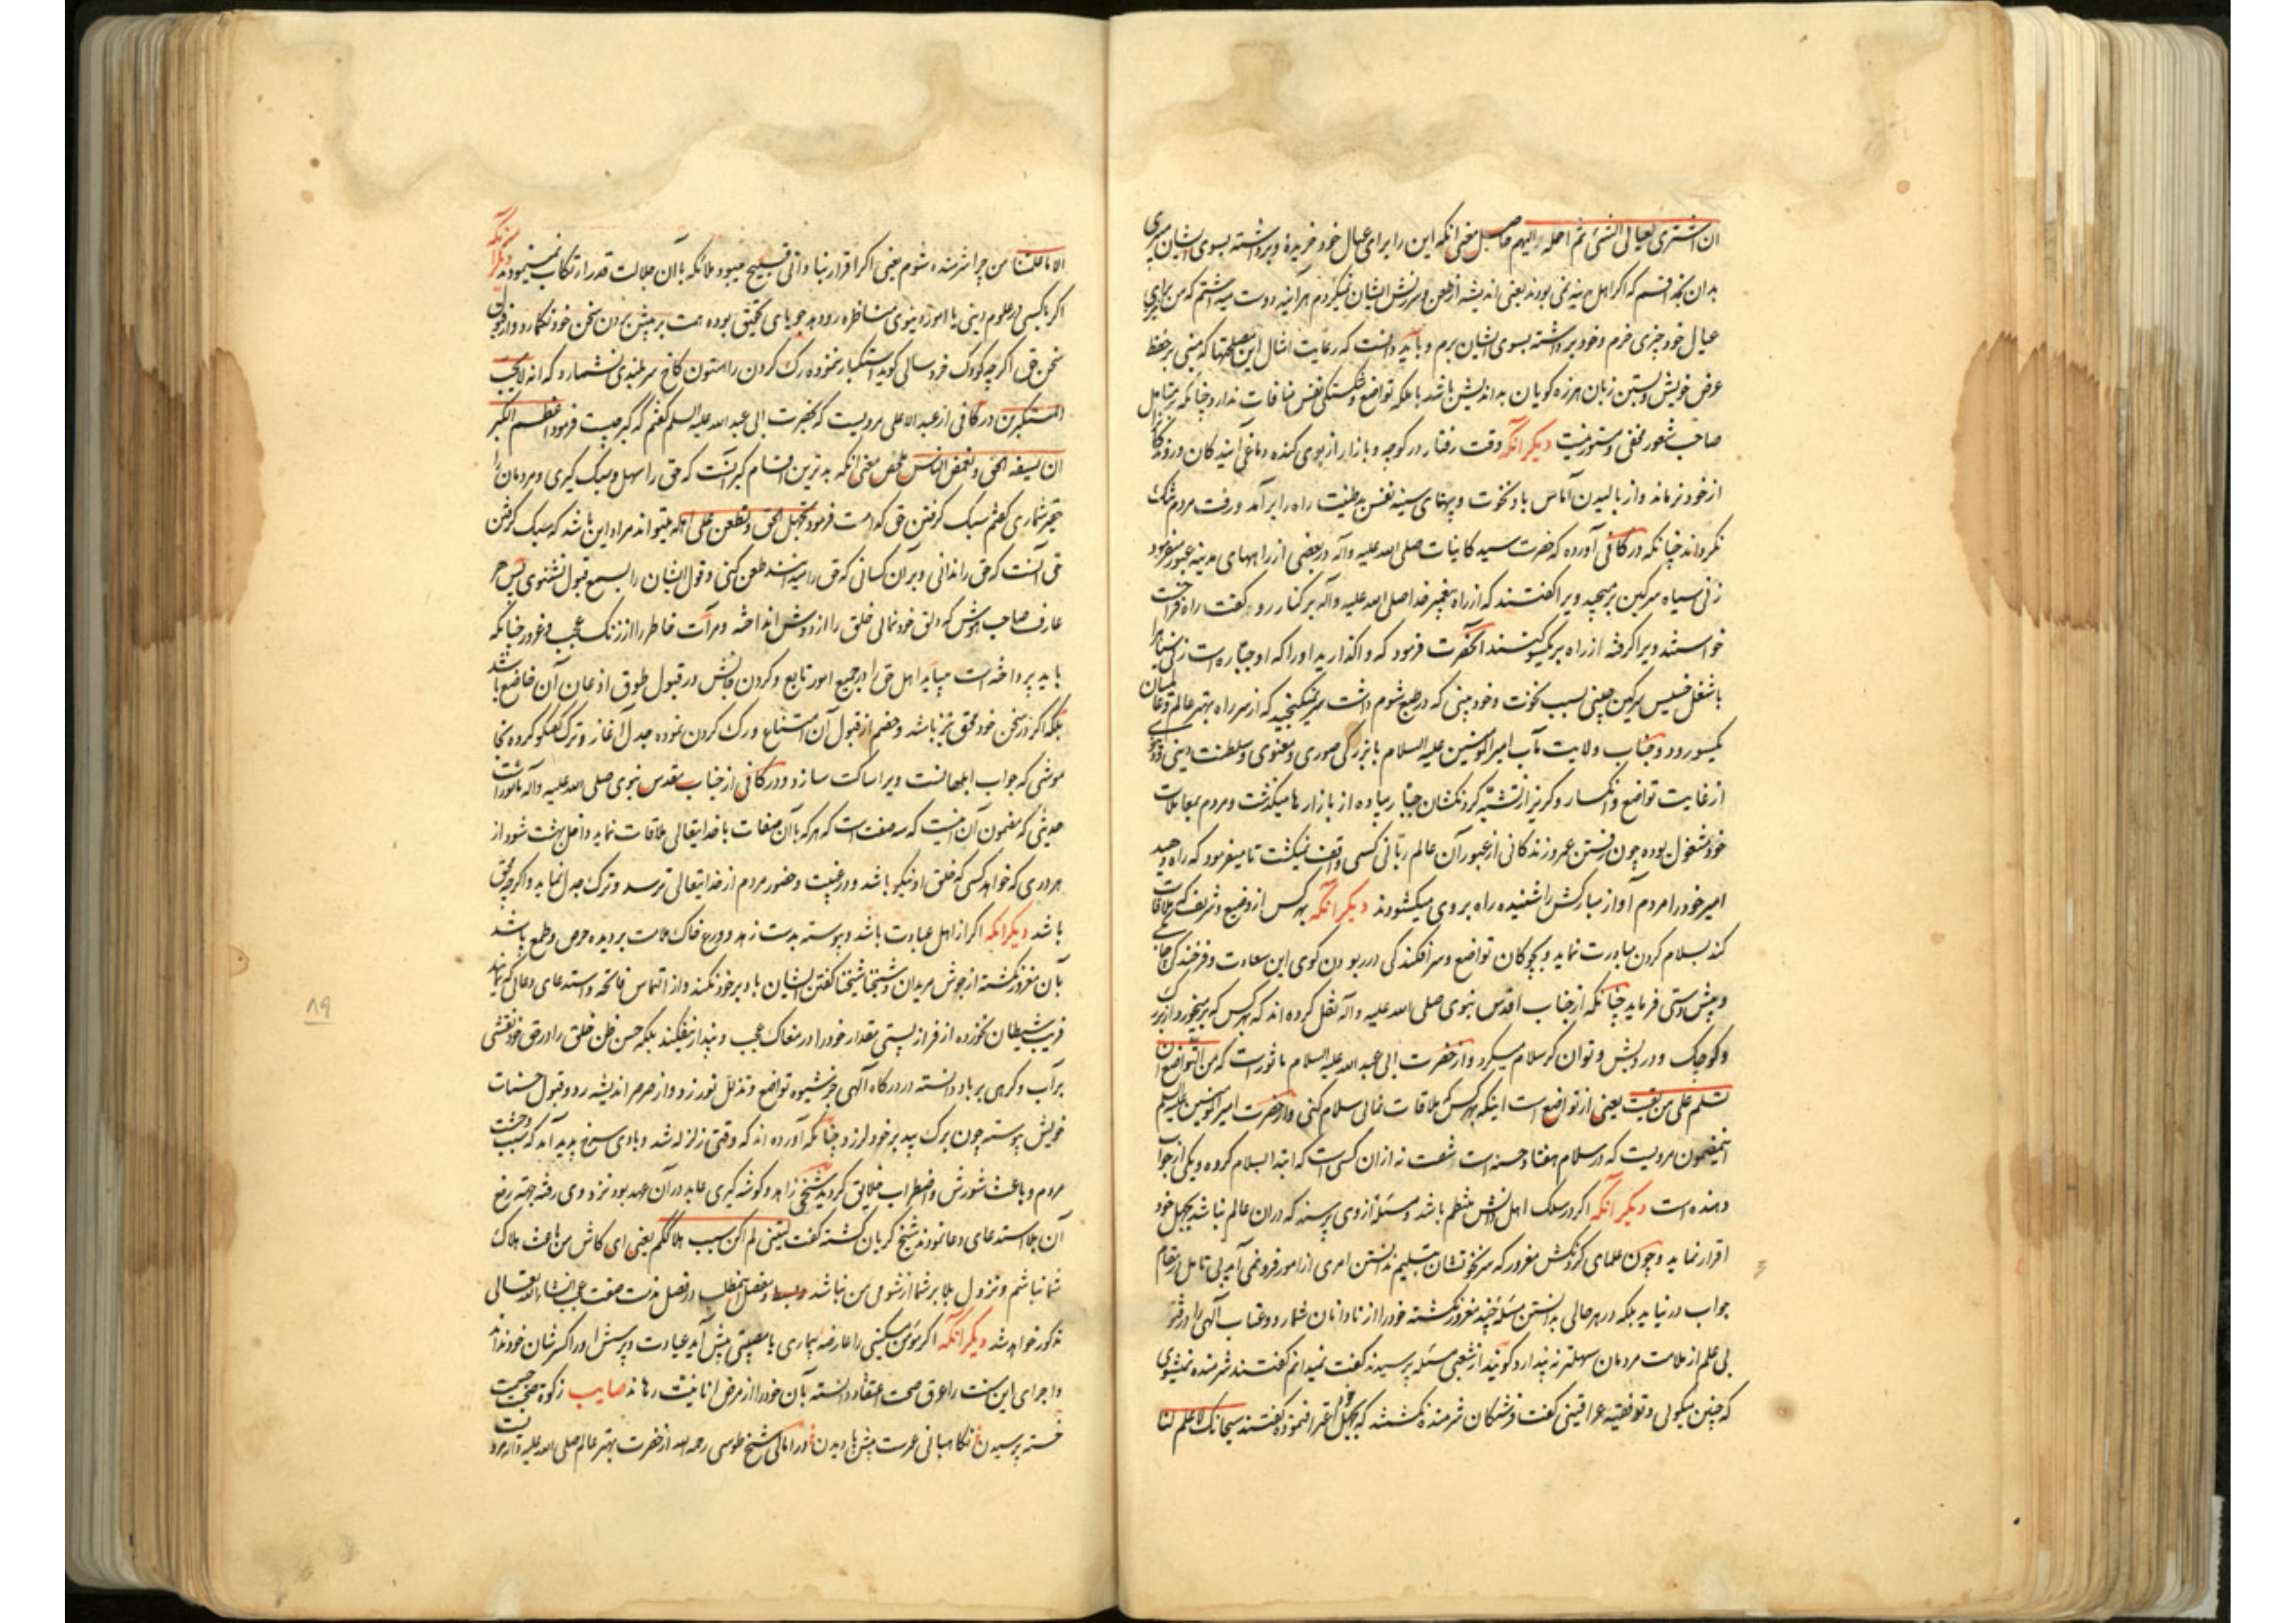 ان اشتری لعیالی الشئ ثم احمله الیهم حاصل معنی انکه این را برای عیال خود خریده و برداشته بسوی ایشان میبری
بدان بخدا قسم که اکر اهل مدینه نمی بودند یعنی اندیشه از طعن و سرزنش ایشان نمیکردم هر آینه دوست میداشتم که من برای
عیال خود چیزی خرم و خود برداشته بسوی ایشان برم و باید دانست که رعایت امثال این مصلحتها که مبنی بر حفظ
عرض خویش و بستن زبان هرزه کویان بد اندیش باشد با ملکه تواضع و شکستکی نفس منافات ندارد چنانکه بر متامل
صاحب شعور مخفی و مستور نیست دیکر انکه وقت رفتار در کوچه و بازار از بوی کنده دماغی آیند کان و روندکانرا
از خود نرماند و از بالیدن آماس باد نخوت و پهنای سینه نفس بد طینت راه را بر آمد و رفت مردم تنک
نکرداند چنانکه در کافی آورده که حضرت سید کاینات صلی الله علیه و آله در بعضی از راههای مدینه عبور میفرمود
زنی سیاه سرکین برمیچید ویرا کفتند که از راه پیغمبر خدا صلی الله علیه و آله بر کنار رو کفت راه فراخست
خواستند ویرا کرفته از راه بر یکسو کنند انحضرت فرمود که واکذارید او را که او جباره است زنی سیاه را
با شغل خسیس سرکین چینی بسبب نخوت و خود بینی که در طبع شوم داشت نمیکنجید که از سر راه بهتر عالم و عالمیان
یکسو رود و جناب ولایت مآب امیر المومنین علیه السلام با بزرکی صوری و معنوی و سلطنت دینی و دنیوی
از غایت تواضع و انکسار و کریز از تشبه کردنکشان جبار پیاده از بازارها میکذشت و مردم بمعاملات
خود مشغول بوده چون رفتن عمر و زندکانی از عبور آن عالم ربانی کسی واقف نمیکشت تا میفرمود که راه دهید
امیر خود را مردم آواز مبارکش را شنیده راه بر وی میکشودند دیکر انکه بهر کس از وضیع و شریف که ملاقات
کند بسلام کردن مبادرت نماید و بچوکان تواضع و سرافکندکی در ربودن کوی این سعادت و فرخندکی چابکی
و پیش دستی فرماید چنانکه از جناب اقدس نبوی صلی الله علیه و آله نقل کرده اند که بهر کس که بر میخورد از بزرک
و کوچک و درویش و توانکر سلام میکرد و از حضرت ابی عبد الله علیه السلام ماثور است که من التواضع ان
تسلم علی من لقیت یعنی از تواضع است اینکه بهر کس که ملاقات نمائی سلام کنی و از حضرت امیر المومنین علیه السلم
اینمضمون مرویست که در سلام هفتاد حسنه است شصت نه ازان کسی است که ابتدا بسلام کرده و یکی از جواب
دهنده است دیکر انکه اکر در سلک اهل دانش منتظم باشد و مسئله از وی پرسند که دران عالم نباشد بجهل خود
اقرار نماید و چون علمای کردنکش مغرور که سر نخوتشان بتسلیم ندانستن امری از امور فرو نمی آید بی تامل در مقام
جواب در نیاید بلکه در هر حالی بدانستن مسئله چند مغرور نکشته خود را از نادانان شمارد و عتاب آلهی را در فتوی
بی علم از ملامت مردمان سهلتر نه پندارد کویند از شعبی مسئله پرسیدند کفت نمیدانم کفتند شرمنده نمیشوی
که چنین میکوئی و تو فقیه عراقینی کفت فرشتکان شرمنده نکشتند که بجهل خود اعتراف نموده کفتند سبحانک لا علم لنا
الا ما علمتنا من چرا شرمنده شوم یعنی اکر اقرار بنادانی قبیح میبود ملائکه با آن جلالت قدر ارتکاب نمینمودند دیکر انکه
اکر با کسی در علوم دینی یا امور دنیوی مناظره رود جویای تحقیق بوده همت بر پیش بردن سخن خود نکمارد و از قبول
سخن حق اکرچه کودک خردسالی کوید استکبار ننموده رک کردن را ستون کاخ سربلندی نشمارد که انه لا یحب
المستکبرین در کافی از عبد الاعلی مرویست که بحضرت ابی عبد الله علیه السلم کفتم که کبر چیست فرمود اعظم الکبر
ان یسفه الحق و یغمض الناس ملخص معنی انکه بدترین اقسام کبر آنست که حق را سهل و سبک کیری و مردمان را
حقیر شماری کفتم سبک کرفتن حق کدامست فرمود یجهل الحق و یطعن علی اهله میتواند مراد این باشد که سبک کرفتن
حق آنست که حق را ندانی و بر آن کسانی که حق را میدانند طعن کنی و قول ایشان را بسمع قبول نشنوی پس هر
عارف صاحب هوش که دلق خودنمائی خلق را از دوش انداخته و مرآت خاطر را از زنک عجب و غرور چنانکه
باید پرداخته است میباید اهل حق را در جمیع امور تابع و کردن جانش در قبول طوق اذعان آن خاضع باشد
بلکه اکر در سخن خود محق نیز باشد و خصم از قبول آن امتناع و رک کردن نموده جدل آغازد ترک کفتکو کرده بخا
موشی که جواب ابلهانست ویرا ساکت سازد و در کافی از جناب مقدس نبوی صلی الله علیه و آله ماثور است
حدیثی که مضمون آن اینست که سه صفت است که هر که با آن صفات با خدایتعالی ملاقات نماید داخل بهشت شود از
هر دری که خواهد کسی که خلق او نیکو باشد و در غیبت و حضور مردم از خدایتعالی ترسد و ترک جدل نماید و اکرچه محق
باشد دیکر انکه اکر از اهل عبادت باشد و پیوسته بدست زهد و ورع خاک ملامت بر دیده حرص و طمع پاشد
بآن مغرور نکشته از جوش مریدان و شیخنا شیخنا کفتن ایشان باد بر خود نکند و از التماس فاتحه و استدعای دعائی که نمایند
فریب شیطان نخورده از فراز پستی مقدار خود را در مغاک عجب و پندار نیفکند بلکه حسن ظن خلق را در حق خود نقشی
بر آب و کرهی بر باد دانسته در درکاه آلهی جز شیوه تواضع و تذلل نورزد و از صرصر اندیشه رد و قبول حسنات
خویش پیوسته چون برک بید بر خود لرزد چنانکه آورده اند که وقتی زلزله شد و بادی سرخ پدید آمد که سبب وحشت
مردم و باعث شورش و اضطراب خلایق کردید شیخی زاهد و کوشه کیری عابد در آن عهد بود نزد وی رفته جهة رفع
آن بلا استدعای دعا نمودند شیخ کریان کشته کفت لیتنی لم اکن سبب هلاککم یعنی ای کاش من باعث هلاک
شما نباشم و نزول بلا بر شما از شومی من نباشد و بسط و تفصیل اینمطلب در فصل مذمت صفت عجب انشاء الله تعالی
مذکور خواهد شد دیکر انکه اکر مؤمن مسکینی را عارضه بیماری یا مصیبتی پیش آید عیادت و پرسش او را کسر شان خود نداند
و اجرای این سنت را عرق صحت اعتقاد دانسته بآن خود را از مرض انانیت رهاند صایب زکوة صحت جسمست
خسته پرسیدن نکاهبانی عمرست پیش پا دیدن و در امالی شیخ طوسی رحمه الله از حضرت بهتر عالم صلی الله علیه و آله مرویست
۸۹